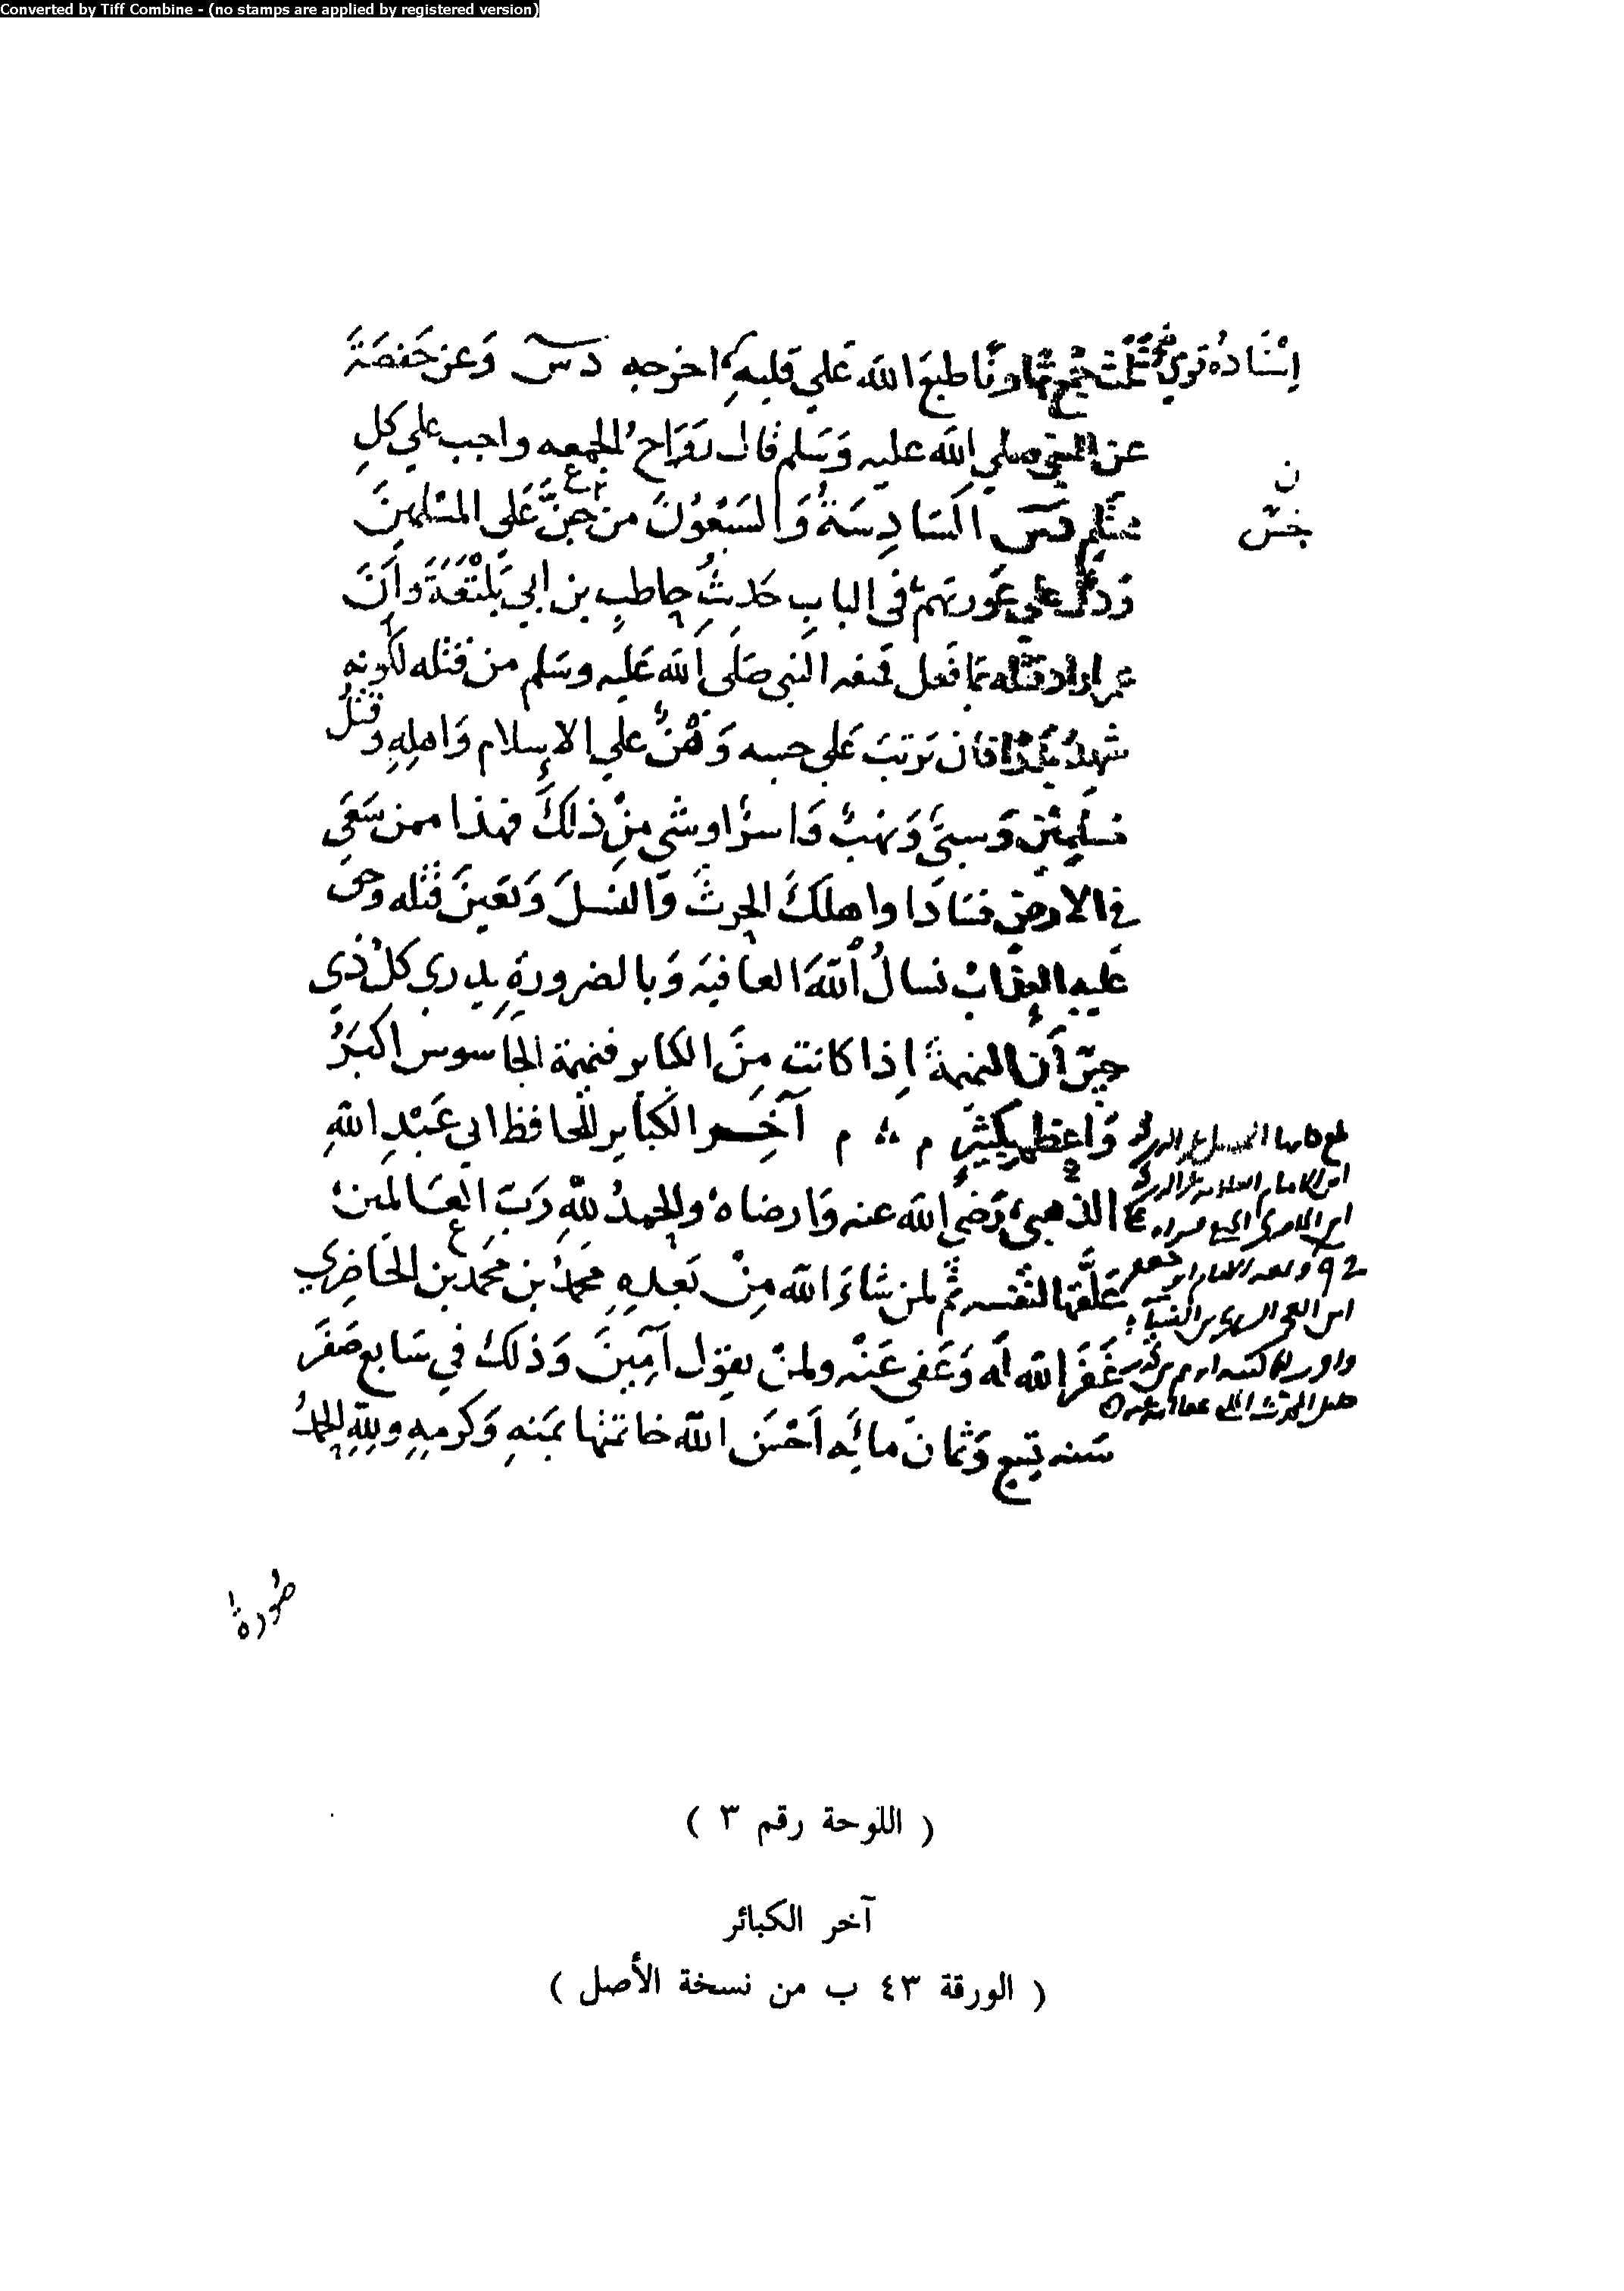 Converted by Tiff Combine - (no stamps are applied by registered version)
إسْنَادُهُ قوي ثَلَث جُمَع تهاونًا طبعَ اللهَ عَلي قلبهِ اخرجه دَسَ وَعن حَفصَةَ
عن النبي صلي الله عليه وَسَلم قال رَوَاحُ الجمعه واجب علي كلِ
ن
محتلم
خمس
السَادِسَةُ وَالسَبْعُوْنَ من جسَّ عَلَى المسْلمينَ
وَدَلَّ علي عَورتهمْ في البابِ حَديثُ حاطبِ بن ابي بَلْتَعَةَ وأنَ
عمر اراد قتله بما فعل فمنعه النبي صَلَى الله عَليه وسَلم من قتله لكونه
شهدَ بَدْرًا فان تَرتبَ عَلى جسه وَهْنٌ علي الإسلام وَاهلِهِ وقتْلُ
مسلمين وَسبيٌ وَنهبٌ وَاسرٌ او شي منْ ذلكَ فهذا ممن سَعَى
في الارض فسَادًا واهلكَ الحرثَ وَالنسلَ وَتعَينَ قتْله وَحق
عَليه العذابُ نسالُ اللهَ العافيه وَبالضرورةِ يدري كلُ ذي
حِسّ أن النميمةَ إذا كانت منَ الكباير فنميمة الجاسوس اكبَرُ
وَاعظم بكثيرٍ م ۞ م آخِر الكَبايرِ للحافظ ابي عَبْدِ اللهِ
الذهبي رَضيَ الله عنه وَارضاه والحمدُ للهِ رَبِّ العَالمين
عَلَّقها لنفسه ثمَّ لمن شاءَ الله مِنْ بَعدِهِ محمدُ بن محمد بن الحَاضِرِي
غَفَرَ الله لَه وَعَفى عَنْه ولمنْ يقول آمِينَ وَذلكَ في سَابع صَفَر
سَنه تسع وَثمان مائه اَحْسَنَ الله خاتمتها بمنهِ وَكرمهِ وللهِ الحمدُ
صُورة
( اللوحة رقم ٣ )
آخر الكبائر
( الورقة ٤٣ ب من نسخة الأصل )